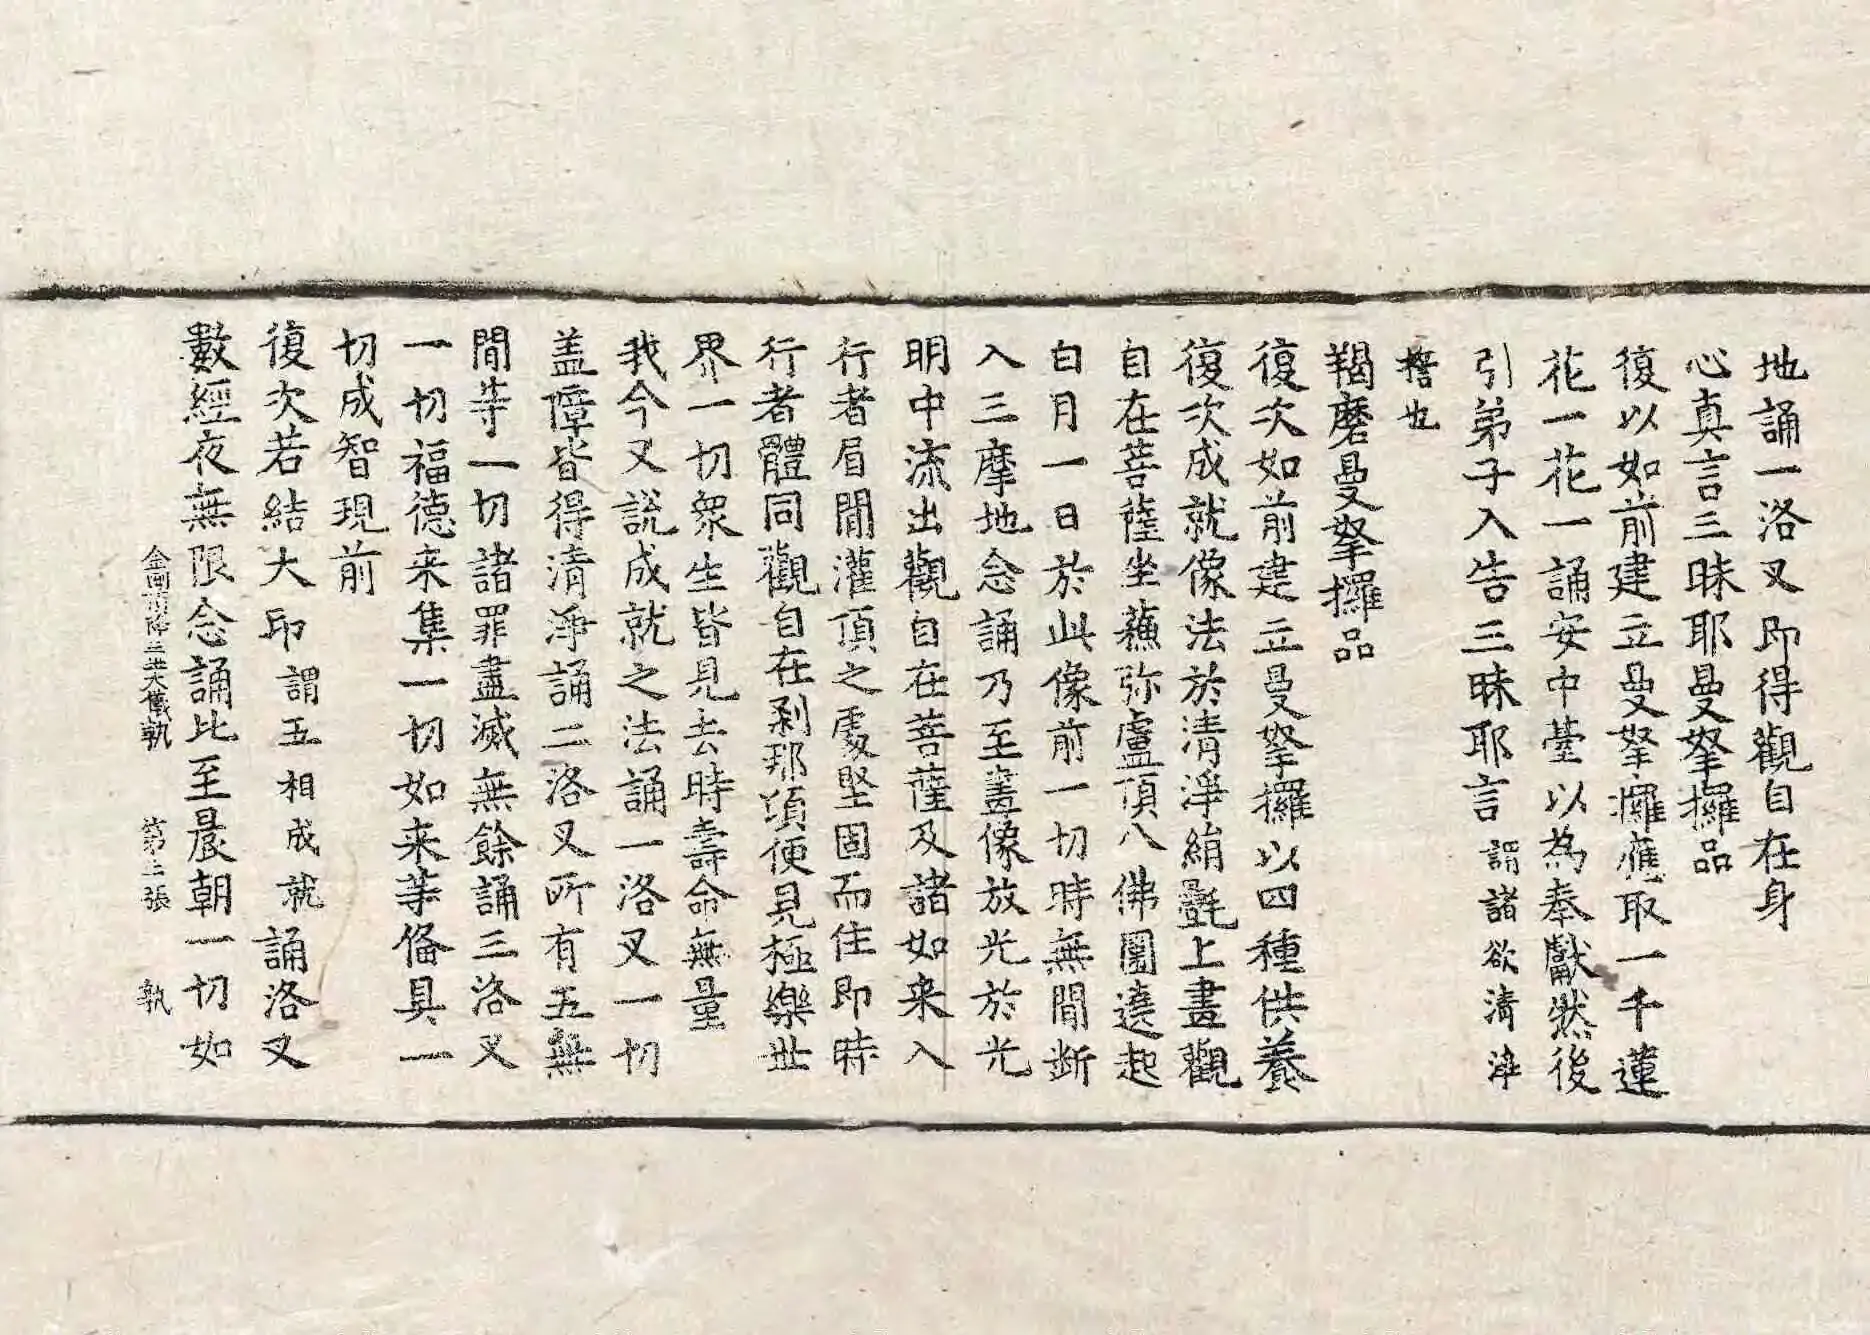 地誦一洛叉即得觀自在身
心真言三昧耶曼拏攞品
復以如前建立曼拏攞應取一千蓮
花一花一誦安中臺以為奉獻然後
引弟子入告三昧耶言謂諸欲清淨
也
羯磨曼拏攞品
復次如前建立曼拏攞以四種供養
復次成就像法於清淨絹㲲上畫觀
自在菩薩坐蘓弥盧頂八佛圍遶起
白月一日於此像前一切時無間断
入三摩地念誦乃至畫像放光於光
明中流出觀自在菩薩及諸如来入
行者眉間灌頂之處堅固而住即時
行者體同觀自在刹那頃便見極樂世
界一切衆生皆見去時壽命無量
我今又說成就之法誦一洛叉一切
盖障皆得清淨誦二洛叉所有五無
間等一切諸罪盡滅無餘誦三洛叉
一切福德来集一切如来等俻具一
切成智現前
復次若結大印謂五相成就誦洛叉
數經夜無限念誦比至晨朝一切如
金剛降三世大儀軌 第二張 孰